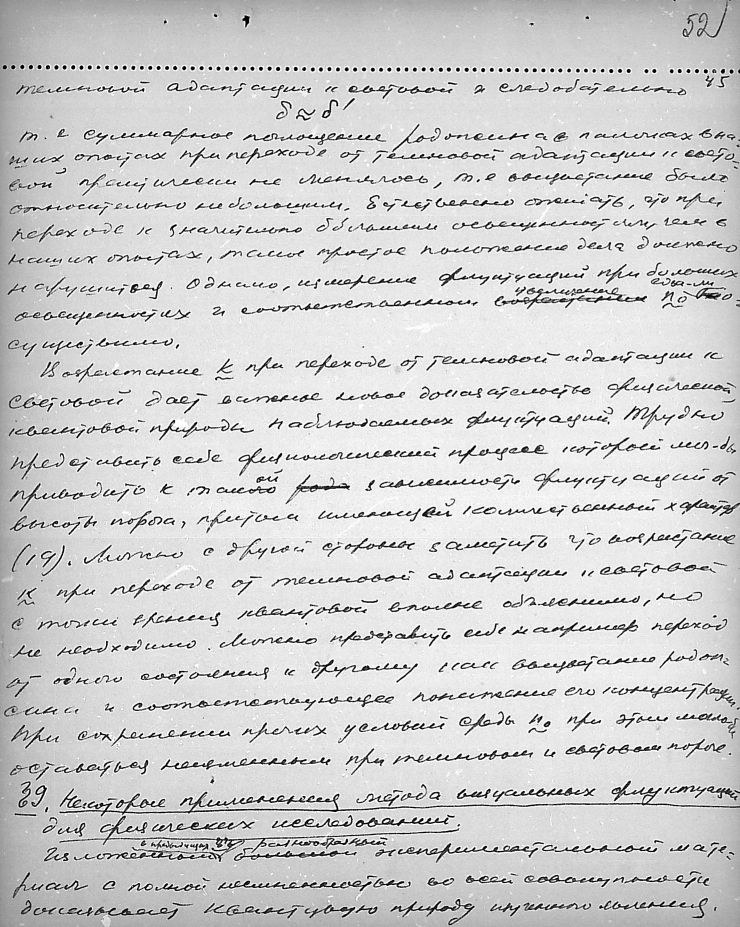 52
45
темновой адаптации к световой и следовательно
δ ≈ δ'
т. е суммарное поглощение родопсина в палочках в на-
ших опытах при переходе от темновой адаптации к свето-
вой практически не менялось, т.е выцветание было
относительно небольшим. Естественно ожидать, что при
переходе к значительно бо́льшим освещенностям чем в
наших опытах, такое простое положение дела должно
нарушиться. Однако, измерение флуктуаций при больших
освещенностях и соответственном увеличение n₀ едва-ли
осуществимо.
Возрастание k при переходе от темновой адаптации к
световой дает важное новое доказательство физической
квантовой природы наблюдаемых флуктуаций. Трудно
представить себе физиологический процесс который мог-бы
приводить к такой зависимости флуктуаций от
высоты порога, притом имеющей количественный характер
(19). Можно с другой стороны заметить что возрастание
k при переходе от темновой адаптации к световой
с точки зрения квантовой вполне объяснимо, но
не необходимо. Можно представить себе например переход
от одного состояния к другому как выцветание родоп-
сина и соответствующее понижение его концентрации.
При сохранении прочих условий среды n₀ при этом могло-бы
оставаться неизменным при темновом и световом пороге.
§9. Некоторые применения метода визуальных флуктуаций
для физических исследований.
Изложенный в предыдущих §§ разнообразный экспериментальный мате-
риал с полной несомненностью во всей совокупности
доказывает квантовую природу изученного явления.